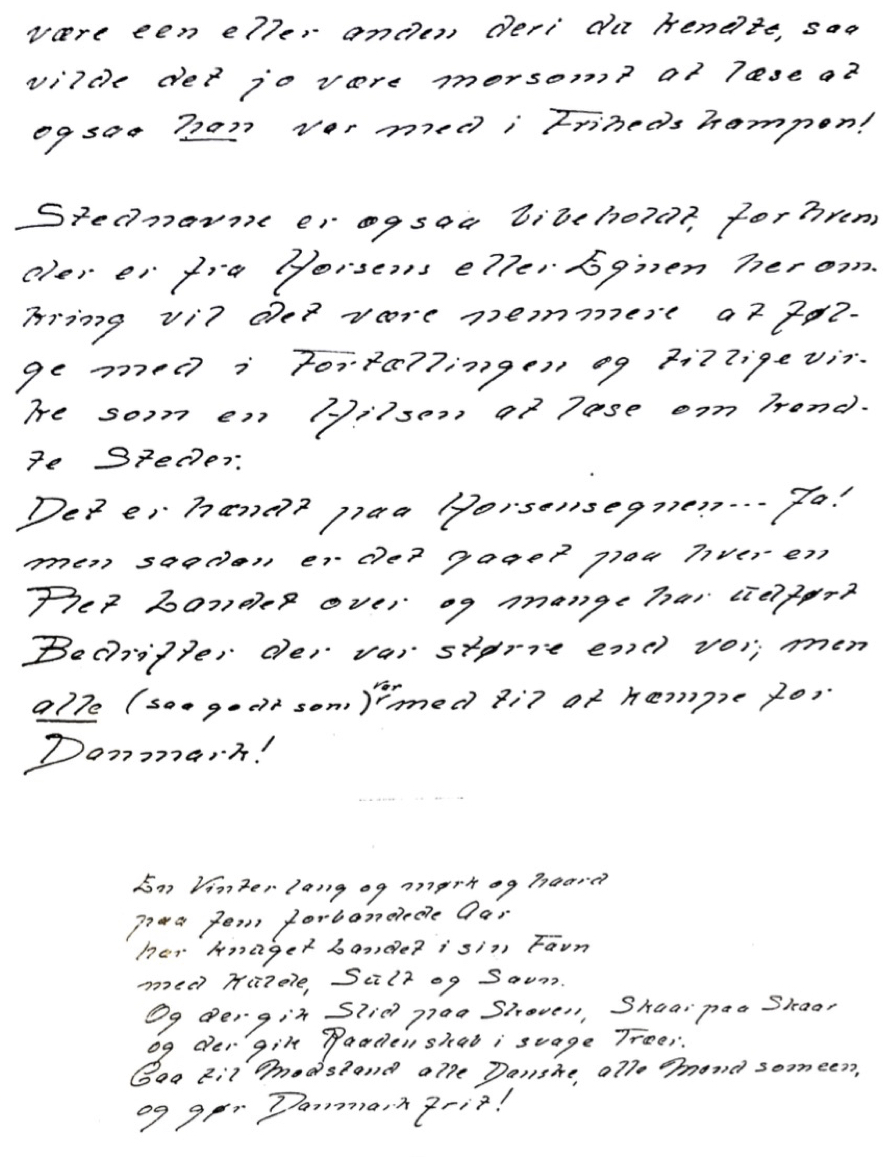 være een eller anden deri du kendte, saa
vilde det jo være morsomt at læse at
ogsaa han var med i Frihedskampen!
Stednavne er ogsaa bibeholdt, for hvem
der er fra Horsens eller Egnen herom-
kring vil det være nemmere at føl-
ge med i Fortællingen og tillige vir-
ke som en Hilsen at læse om kend-
te Steder.
Det er hændt paa Horsensegnen--- Ja!
men saadan er det gaaet paa hver en
Plet Landet over og mange har udført
Bedrifter der var større end vor; men
alle (saa godt som) var med til at kæmpe for
Danmark!
En Vinter lang og mørk og haard
paa fem forbandede Aar
har knuget Landet i sin Favn
med Kulde, Sult og Savn.
Og der gik Slid paa Skoven, Skaar paa Skaar
og der gik Raadenskab i svage Træer.
Gaa til Modstand alle Danske, alle Mænd som een,
og gør Danmark frit!